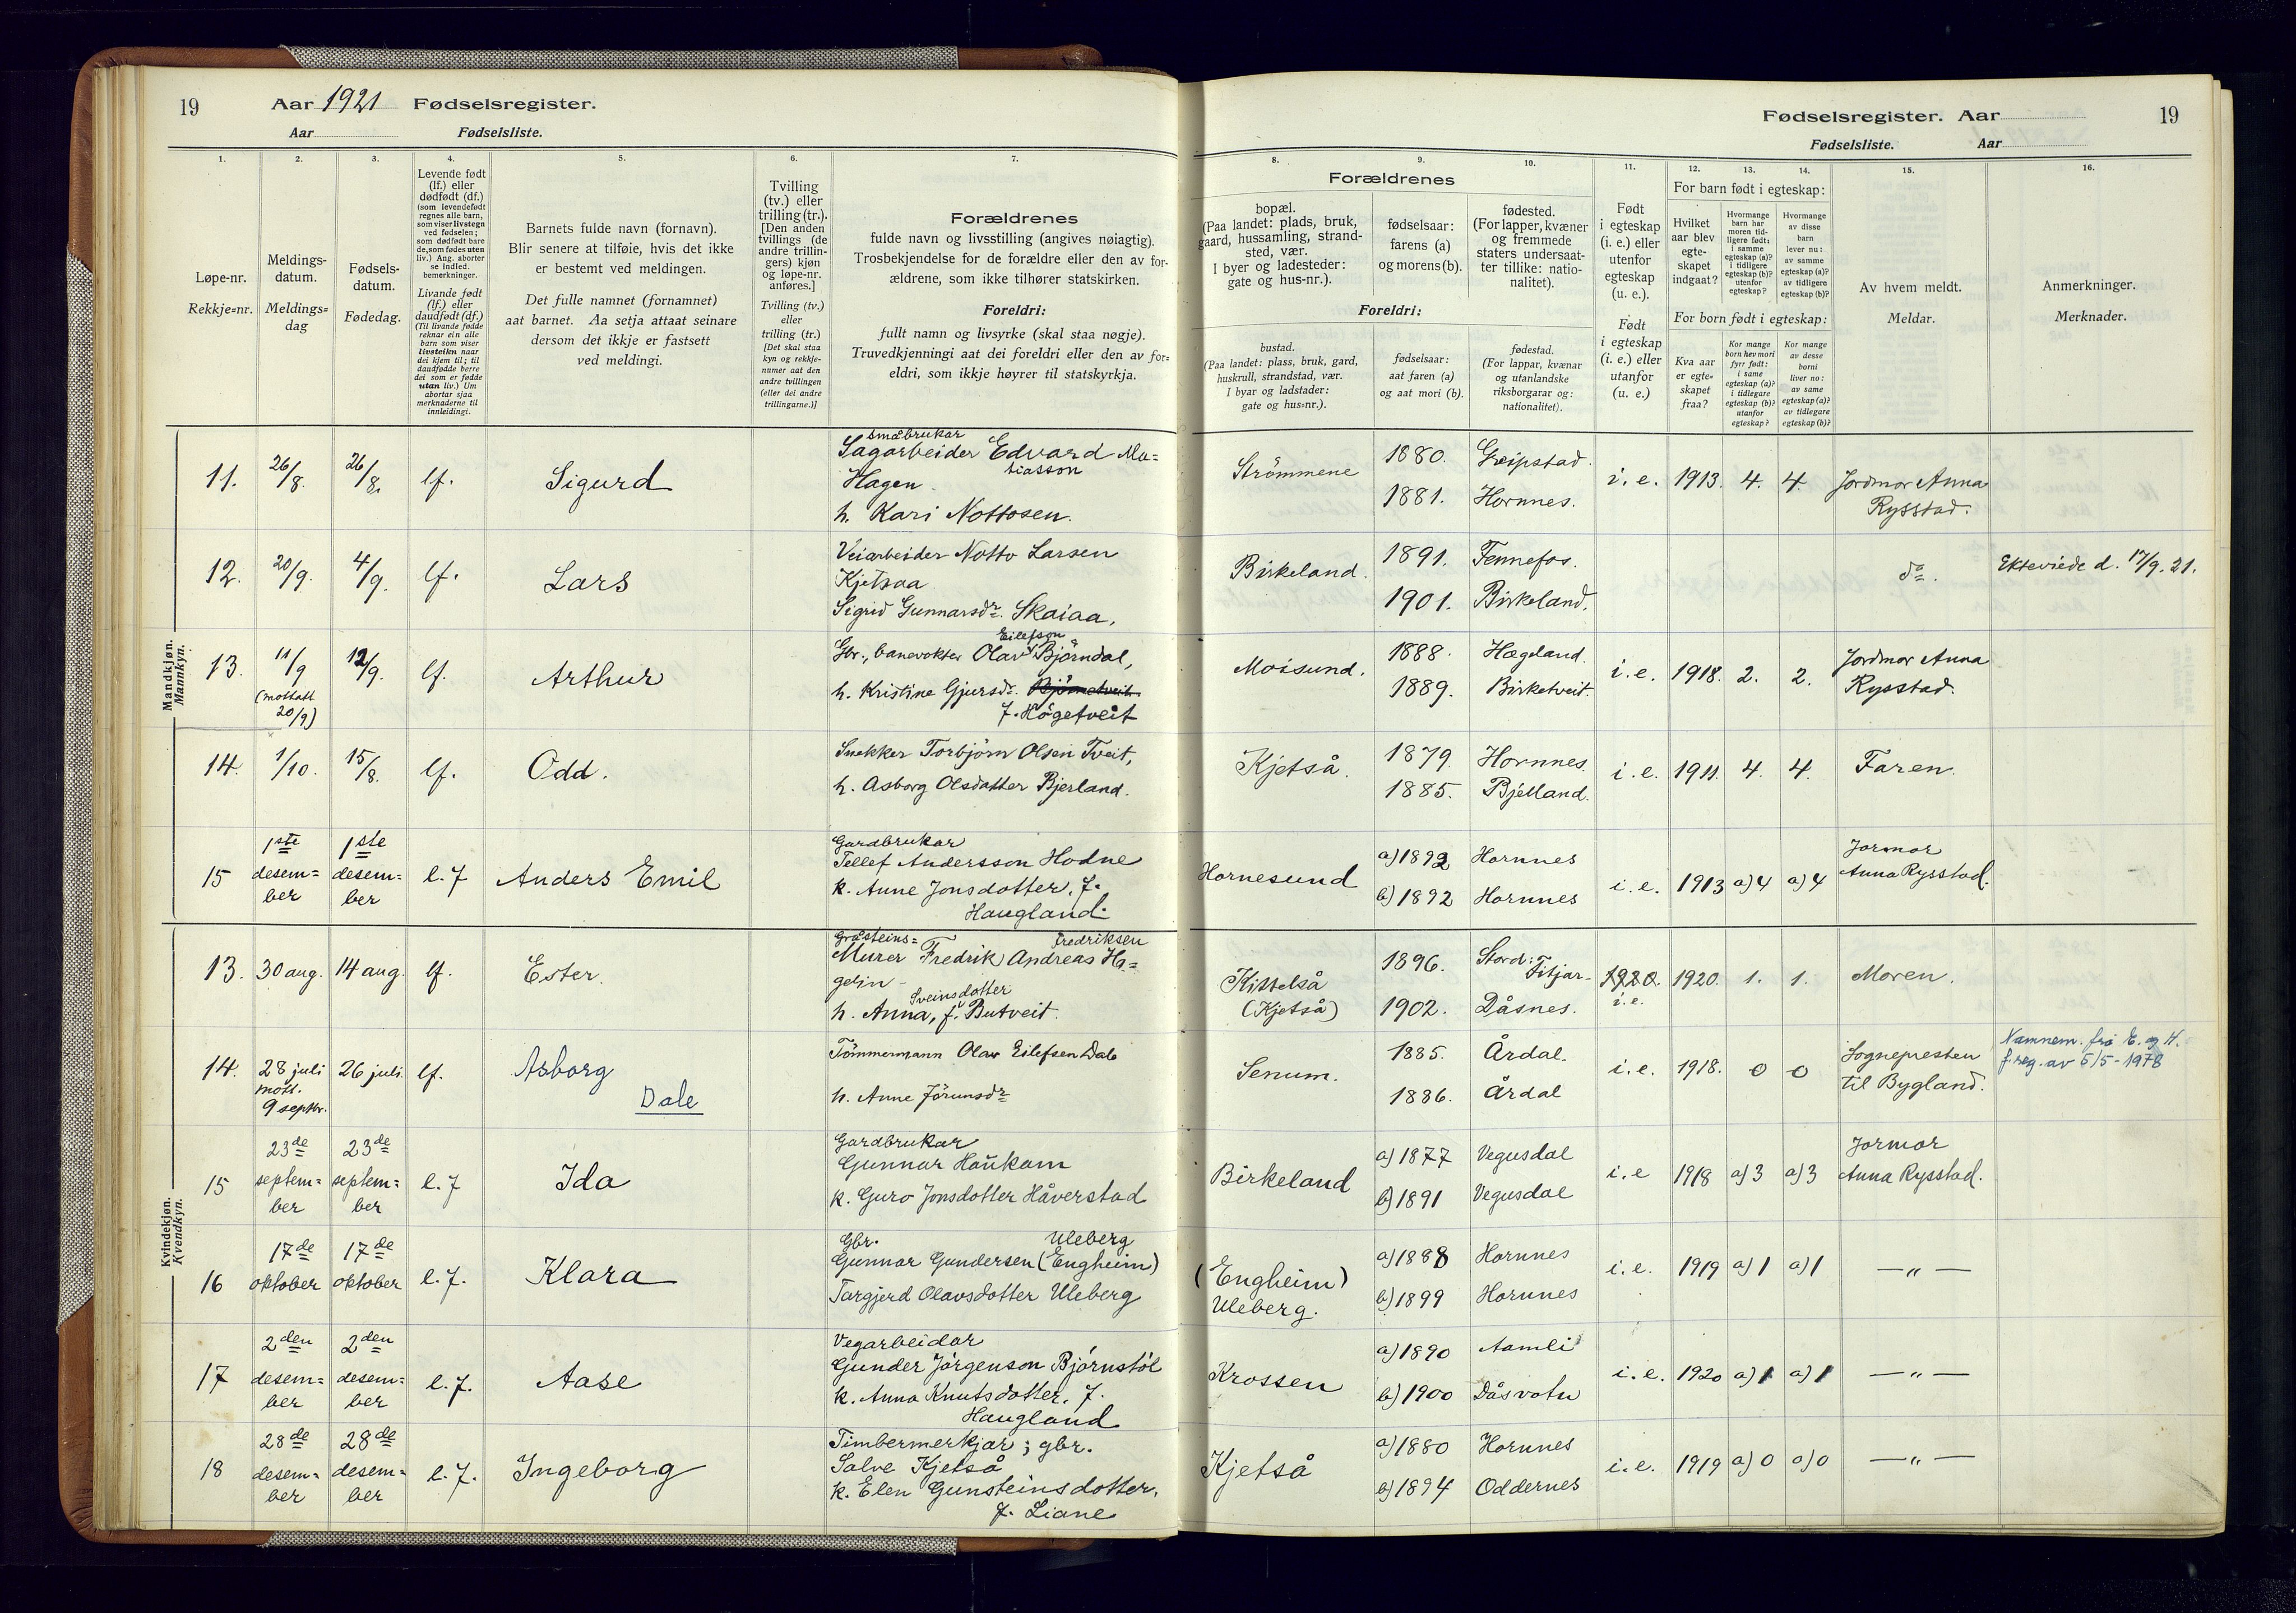 19 Aar 1921 Fødselsregister.
Aar Fødselsliste.
1. 2. 3. 4. 5. 6. 7.
Løpe-nr.
Rekkje=nr.
Meldings-
datum.
Meldings=
dag
Fødsels-
datum.
Fødedag.
Levende født
(lf.) eller
dødfødt (df.)
(som levendefødt
regnes alle barn,
som viser livstegn
ved fødselen;
som dødfødt bare
de, som fødes uten
liv.) Ang. aborter
se indled.
bemerkninger.
Livande født
(lf.) eller
daudfødt (df.)
(Til livande fødde
reknar ein alle
barn som viser
livsteikn naar
dei kjem til; til
daudfødde berre
dei som er fødde
utan liv.) Um
abortar sjaa
merknaderne til
innleidingi.
Barnets fulde navn (fornavn).
Blir senere at tilføie, hvis det ikke
er bestemt ved meldingen.
Det fulle namnet (fornamnet)
aat barnet. Aa setja attaat seinare
dersom det ikkje er fastsett
ved meldingi.
Tvilling
(tv.) eller
trilling (tr.).
[Den anden
tvillings (de
andre trillin-
gers) kjøn
og løpe-nr.
anføres.]
Tvilling (tv.)
eller
trilling (tr.)
[Det skal staa
kyn og rekkje-
numer aat den
andre tvillingen
(eller dei andre
trillingarne.)]
Forældrenes
fulde navn og livsstilling (angives nøiagtig).
Trosbekjendelse for de forældre eller den av for-
ældrene, som ikke tilhører statskirken.
Foreldri:
fullt namn og livsyrke (skal staa nøgje).
Truvedkjenningi aat dei foreldri eller den av for=
eldri, som ikkje høyrer til statskyrkja.
Fødselsregister. Aar 19
Fødselsliste. Aar
8. 9. 10. 11. 12. 13. 14. 15. 16.
Forældrenes
bopæl.
(Paa landet: plads, bruk,
gaard, hussamling, strand-
sted, vær.
I byer og ladesteder:
gate og hus-nr.).
fødselsaar:
farens (a)
og morens (b).
fødested.
(For lapper, kvæner
og fremmede
staters undersaat-
ter tillike: natio-
nalitet).
Foreldri:
bustad.
(Paa landet: plass, bruk, gard,
huskrull, strandstad, vær.
I byar og ladstader:
gate og hus=nr.).
fødselsaar:
aat faren (a)
og aat mori (b).
fødestad.
(For lappar, kvænar
og utanlandske
riksborgarar og:
nationalitet).
Født
i egteskap
(i. e.) eller
utenfor
egteskap
(u. e.).
Født
i egteskap
(i. e.) eller
utanfor
(u. e.)
For barn født i egteskap:
Hvilket
aar blev
egte-
skapet
indgaat?
Hvormange
barn har
moren tid-
ligere født:
i samme
egteskap (a)?
i tidligere
egteskap (b)?
utenfor
egteskap?
Hvormange
av disse
barn
lever nu:
av samme
egteskap (a)?
av tidligere
egteskap (b)?
For born født i egteskap:
Kva aar
er egte=
skapet
fraa?
Kor mange
born hev mori
fyrr født:
i same
egteskap (a)?
i tidlegare
egteskap (b)?
utanfor
egteskap?
Kor mange
av desse
borni
liver no:
av same
egteskap (a)?
av tidlegare
egteskap (b)?
Av hvem meldt.
Meldar.
Anmerkninger.
Merknader.
Mandkjøn.
Mannkyn.
11. 26/8. 26/8. lf. Sigurd
småbrukar
Sagarbeider Edvard Ma=
tiasson
Hagen
h. Kari Nottosen.
Strömmene 1880. Greipstad.
1881. Hornnes.
i. e. 1913. 4. 4. Jordmor Anna
Rysstad.
12. 20/9. 4/9. lf. Lars
Veiarbeider Notto Larsen
Kjetsaa
Sigrid Gunnarsdr. Skaiaa.
Birkeland. 1891. Fennefos.
1901. Birkeland.
do. Ekteviede d. 17/9. 21.
13. 11/9 12/9. lf. Arthur
(mottatt
20/9)
Eilefson
Gbr., banevokter Olav Björndal,
h. Kristine Gjursdr.
f. Högetveit
Moisund. 1888. Hægeland.
1889. Birketveit.
i. e. 1918. 2. 2. Jordmor Anna
Rysstad.
14. 1/10. 15/8. lf. Odd.
Snekker Torbjörn Olsen Tveit,
h. Asborg Olsdatter Bjerland.
Kjetså. 1879. Hornnes.
1885. Bjelland.
i. e. 1911. 4. 4. Faren.
15 1ste
desem=
ber
1ste
desem=
ber
l. f Anders Emil
Gardbrukar
Tellef Andersson Hodne
k. Anne Jonsdotter, f.
Haugland.
Hornesund a) 1892 Hornnes
b) 1892 Hornnes
i. e. 1913 a) 4 a) 4 Jormor
Anna Rysstad.
Kvindekjøn.
Kvendkyn.
13. 30 aug. 14 aug. lf. Ester.
Gråsteins= Fredriksen
Murer Fredrik Andreas Ha=
gelin
Sveinsdotter
h. Anna, f. Butveit.
Kittelså
(Kjetså)
1896. Stord: Fitjar
1902. Dåsnes.
1920. i. e. 1920. 1. 1. Moren.
14. 28 juli
mott.
9 septbr.
26 juli. lf. Asborg
Dale
Tömmermann Olav Eilefsen Dale
h. Anne Jörunsdr
Senum. 1885. Årdal.
1886. Årdal
i. e. 1918. 0 0 Sognepresten
til Bygland.
Namnem. frå E. og H.
f.reg. av 5/5-1978
15 23de
septem=
ber
23de
septem=
ber
l. f Ida
Gardbrukar
Gunnar Haŭkom
k. Guro Jonsdotter Håverstad
Birkeland a) 1877 Vegusdal
b) 1891 Vegusdal
i. e 1918 a) 3 a) 3 Jormor
Anna Rysstad.
16 17de
oktober
17de
oktober
l. f. Klara
Gbr. Uleberg
Gunnar Gundersen (Engheim)
Targjerd Olavsdotter Uleberg
(Engheim)
Uleberg.
a) 1888 Hornnes
b) 1899 Hornnes
i. e. 1919 a) 1 a) 1 — " —
17 2den
desem=
ber
2den
desem=
ber
l. f. Aase
Vegarbeidar
Gunder Jörgenson Björnstöl
k. Anna Knutsdotter, f.
Haugland
Krossen a) 1890 Aamli
b) 1900 Dåsvatn
i. e. 1920 a) 1 a) 1 — " —
18 28de
desem=
ber
28de
desem=
ber
l. f. Ingeborg
Timbermerkjar; gbr.
Salve Kjetså
k. Elen Gunsteinsdotter,
f. Liane
Kjetså a) 1880 Hornnes
b) 1894 Oddernes
i. e. 1919 a) 0 a) 0 — " —